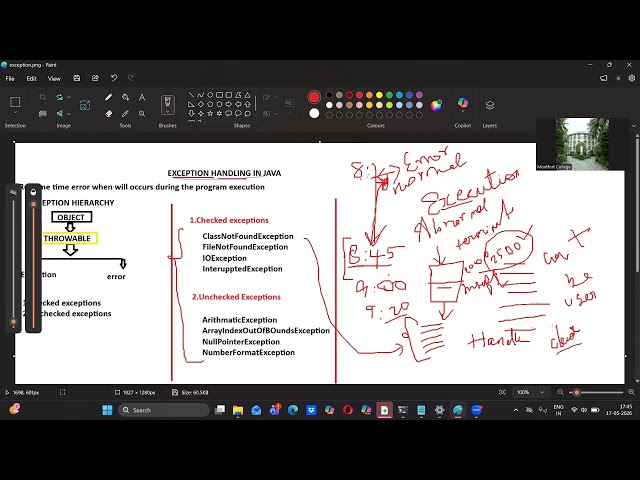 exception.png - Paint
File Edit View
Selection Image Tools Brushes Shapes Colours Copilot Layers
Montfort College
EXCEPTION HANDLING IN JAVA
time error when will occurs during the program execution
EPTION HIERARCHY
OBJECT
THROWABLE
error
checked exceptions
checked exceptions
1.Checked exceptions
ClassNotFoundException
FileNotFoundException
IOException
InterupptedException
2.Unchecked Exceptions
ArithmaticException
ArrayIndexOutOfBOundsException
NullPointerException
NumberFormatException
Error
normal
Execution
Abnormal
terminat
8:45
2500
9:00
9:20
be
user
Handle
1698, 601px
1827 × 1280px
Size: 60.5KB
100%
Search
ENG
IN
17:45
17-05-2026